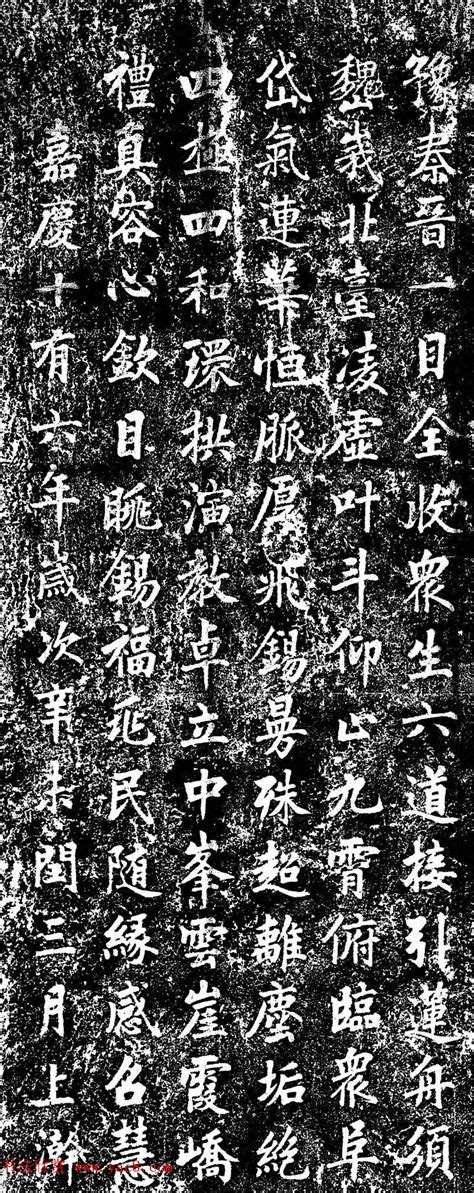 豫秦晉一目全收眾生六道接引蓮舟須
巍峩北臺凌虛叶斗仰止九霄俯臨眾阜
岱氣連華恒脈屬飛錫曇殊超離塵垢絶
四極四和環拱演教卓立中峯雲崖霞嶠
禮真容心欽目眺錫福兆民隨緣感召慧
嘉慶十有六年歲次辛未閏三月上澣